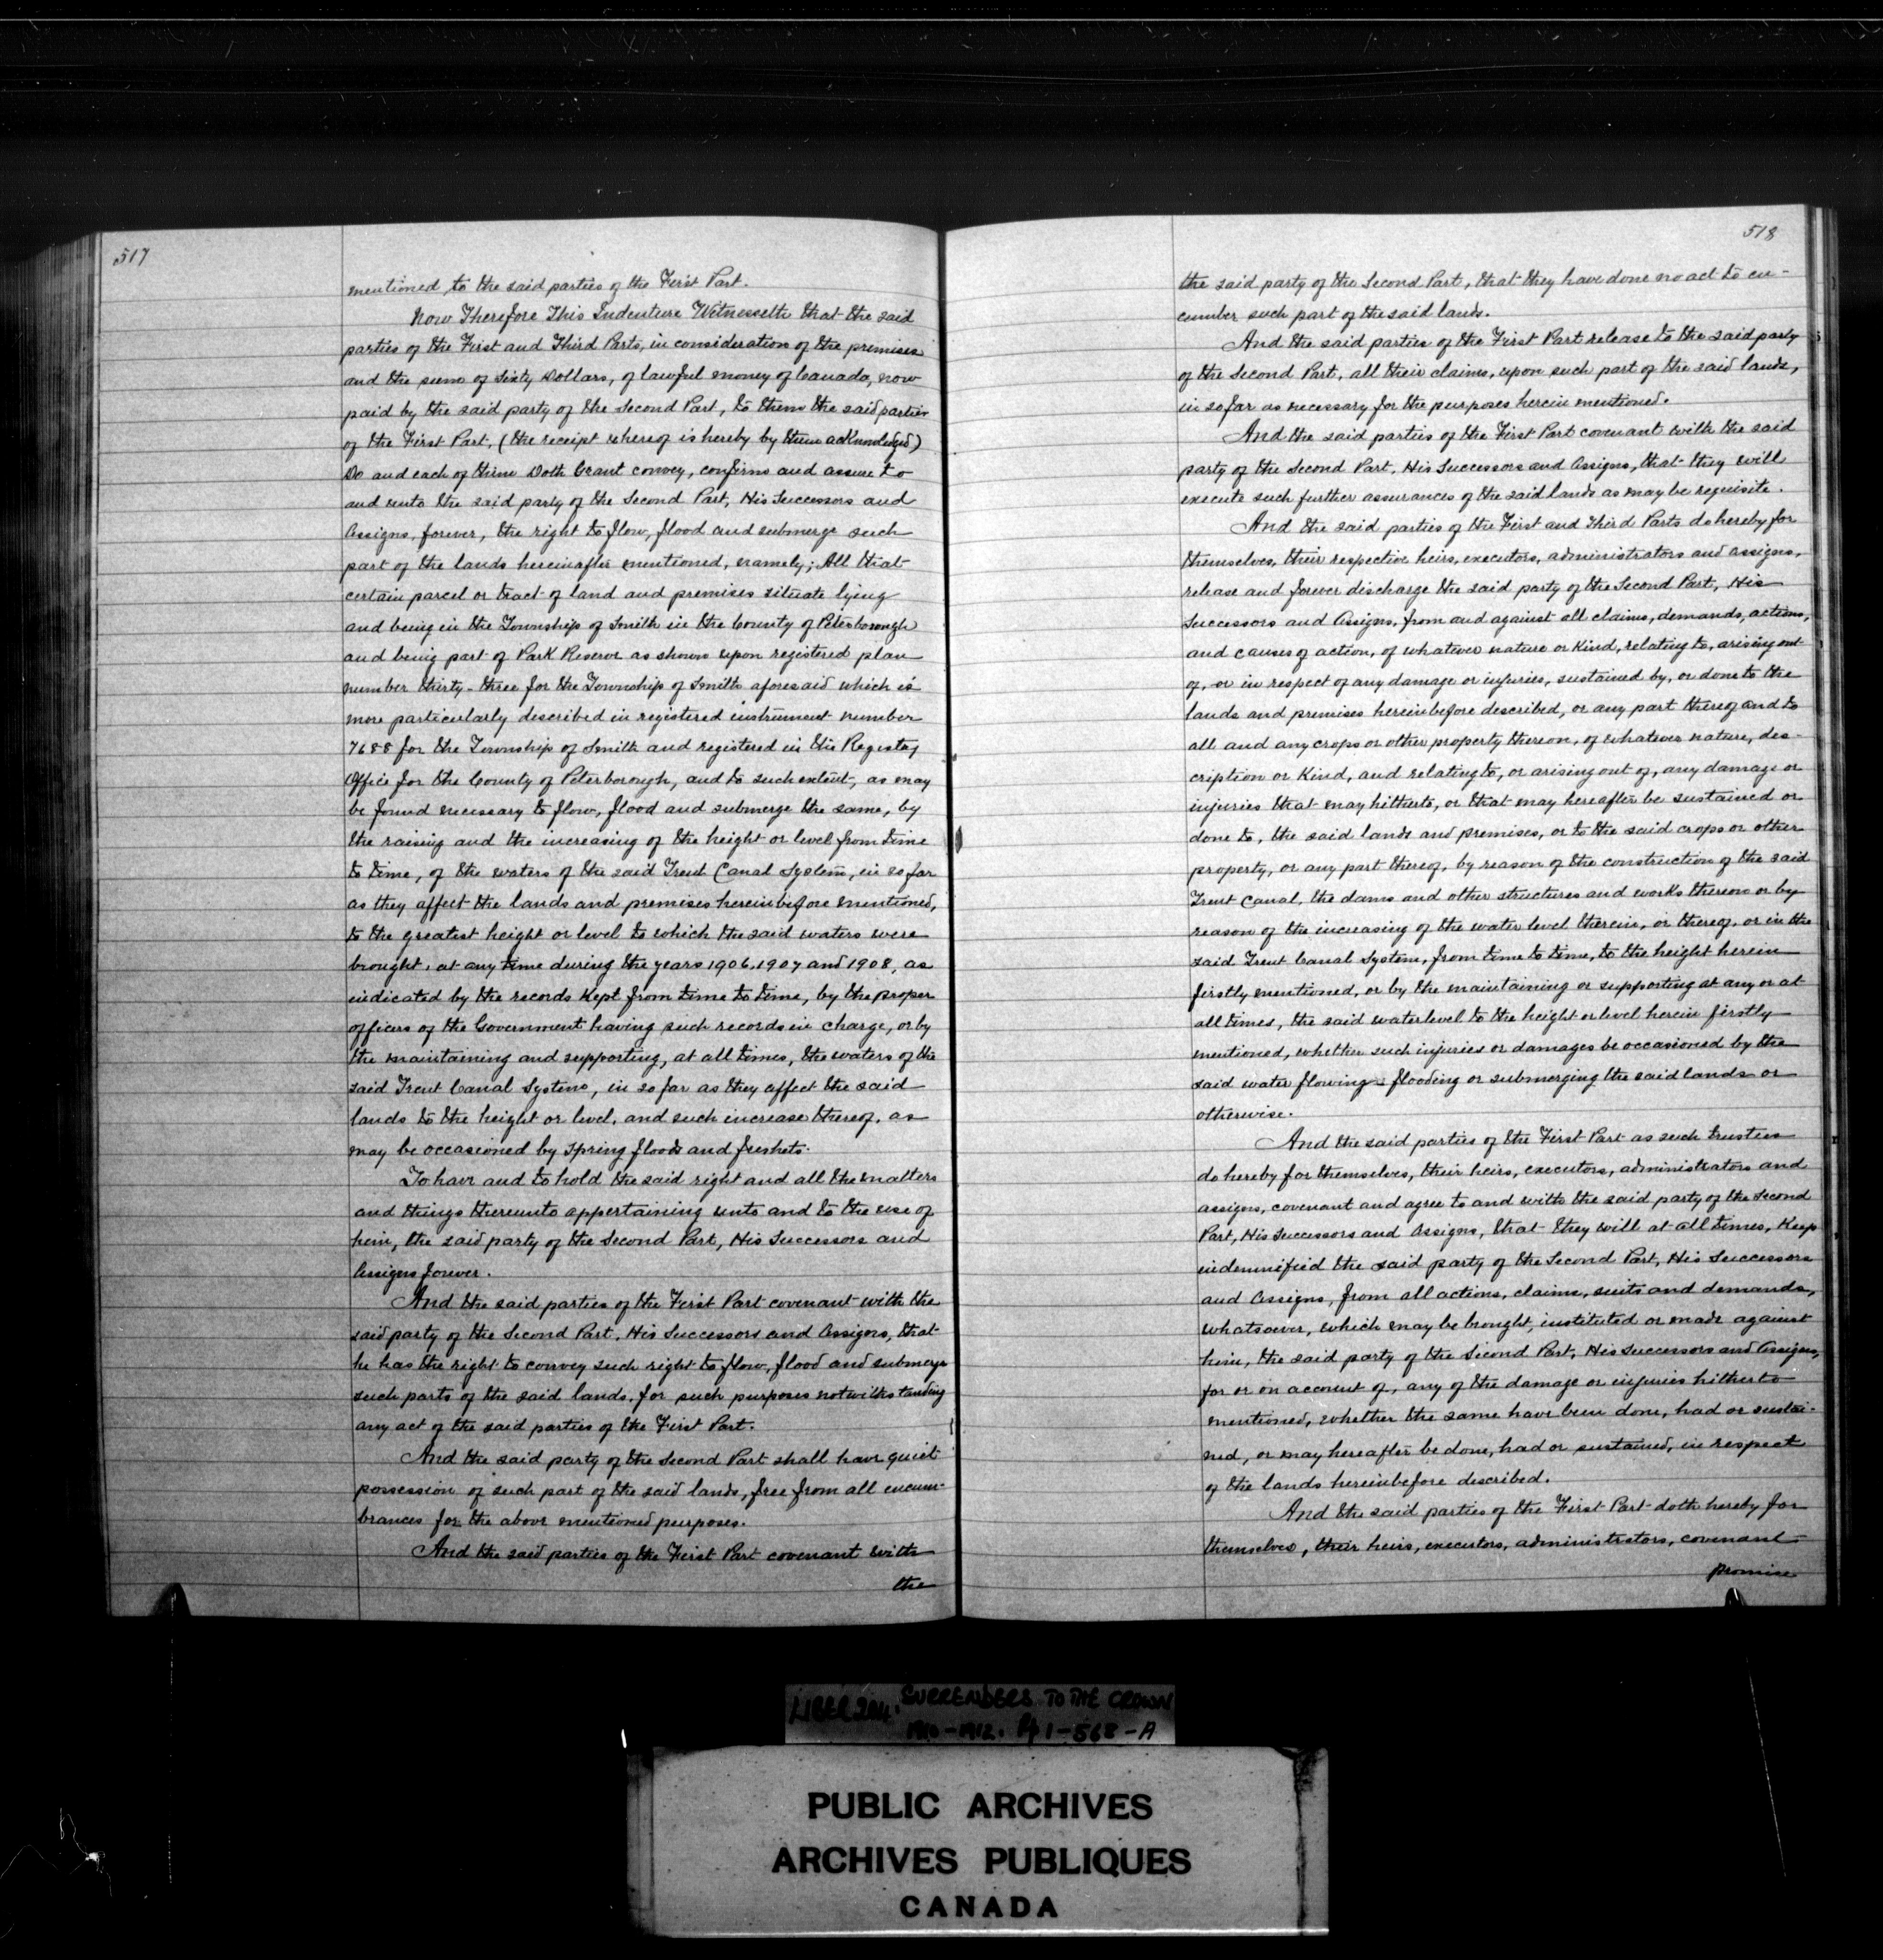 517
mentioned, to the said parties of the First Part.
Now Therefore This Indenture Witnesseth that the said
parties of the First and Third Parts, in consideration of the premises
and the sum of Sixty Dollars, of lawful money of Canada, now
paid by the said party of the Second Part, to them the said parties
of the First Part, (the receipt whereof is hereby by them acknowledged)
Do and each of them Doth Grant convey, confirm and assure to
and unto the said party of the Second Part, His Successors and
Assigns, forever, the right to flow, flood and submerge such
part of the lands hereinafter mentioned, namely; All that
certain parcel or tract of land and premises situate lying
and being in the Township of Smith in the County of Peterborough
and being part of Park Reserve as shown upon registered plan
number thirty-three for the Township of Smith aforesaid which is
more particularly described in registered instrument number
7688 for the Township of Smith and registered in the Registry
Office for the County of Peterborough, and to such extent, as may
be found necessary to flow, flood and submerge the same, by
the raising and the increasing of the height or level from time
to time, of the waters of the said Trent Canal System, in so far
as they affect the lands and premises hereinbefore mentioned,
to the greatest height or level to which the said waters were
brought, at any time during the years 1906, 1907 and 1908, as
indicated by the records kept from time to time, by the proper
officers of the Government having such records in charge, or by
the maintaining and supporting, at all times, the waters of the
said Trent Canal System, in so far as they affect the said
lands to the height or level, and such increase thereof, as
may be occasioned by spring floods and freshets.
To have and to hold the said right and all the matters
and things thereunto appertaining unto and to the use of
him, the said party of the Second Part, His Successors and
Assigns forever.
And the said parties of the First Part covenant with the
said party of the Second Part, His Successors and Assigns, that
he has the right to convey such right to flow, flood and submerge
such parts of the said lands, for such purposes notwithstanding
any act of the said parties of the First Part.
And the said party of the Second Part shall have quiet
possession of such part of the said lands, free from all encum-
brances for the above mentioned purposes.
And the said parties of the First Part covenant with
the
518
the said party of the Second Part, that they have done no act to en-
cumber such part of the said lands.
And the said parties of the First Part release to the said party
of the Second Part, all their claims, upon such part of the said lands,
in so far as necessary for the purposes herein mentioned.
And the said parties of the First Part covenant with the said
party of the Second Part, His Successors and Assigns, that they will
execute such further assurances of the said lands as may be requisite.
And the said parties of the First and Third Parts do hereby for
themselves, their respective heirs, executors, administrators and assigns,
release and forever discharge the said party of the Second Part, His
Successors and Assigns, from and against all claims, demands, actions,
and causes of action, of whatever nature or kind, relating to, arising out
of, or in respect of any damage or injuries, sustained by, or done to the
lands and premises hereinbefore described, or any part thereof and to
all and any crops or other property thereon, of whatever nature, des-
cription or kind, and relating to, or arising out of, any damage or
injuries that may hitherto, or that may hereafter be sustained or
done to, the said lands and premises, or to the said crops or other
property, or any part thereof, by reason of the construction of the said
Trent Canal, the dams and other structures and works thereon or by
reason of the increasing of the water level therein, or thereof, or in the
said Trent Canal System, from time to time, to the height herein
firstly mentioned, or by the maintaining or supporting at any or at
all times, the said water level to the height or level herein firstly
mentioned, whether such injuries or damages be occasioned by the
said water flowing flooding or submerging the said lands or
otherwise.
And the said parties of the First Part as such trustees
do hereby for themselves, their heirs, executors, administrators and
assigns, covenant and agree to and with the said party of the Second
Part, His Successors and Assigns, that they will at all times, keep
indemnified the said party of the Second Part, His Successors
and Assigns, from all actions, claims, suits and demands,
whatsoever, which may be brought, instituted or made against
him, the said party of the Second Part, His Successors and Assigns,
for or on account of, any of the damage or injuries hitherto
mentioned, whether the same have been done, had or sustai-
ned, or may hereafter be done, had or sustained, in respect
of the lands hereinbefore described.
And the said parties of the First Part doth hereby for
themselves, their heirs, executors, administrators, covenant
promise
LIBER 204. SURRENDERS TO THE CROWN
1910-1912. Pp 1-568-A
PUBLIC ARCHIVES
ARCHIVES PUBLIQUES
CANADA